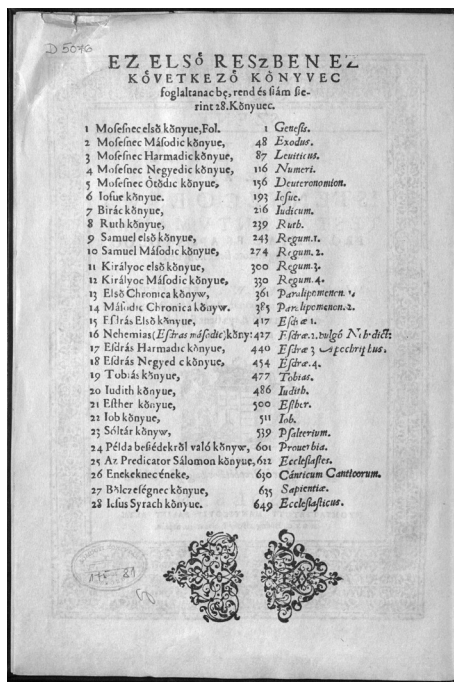 D 5076
EZ ELSŐ RESzBEN EZ
KÖVETKEZŐ KÖNYVEC
foglaltanac bę, rend és ſzám ſze-
rint 28. Könyuec.
1 Moſesnec elsö könyue, Fol. 1 Geneſis.
2 Moſesnec Máſodic könyue, 48 Exodus.
3 Moſesnec Harmadic könyue, 87 Leuiticus.
4 Moſesnec Negyedic könyue, 116 Numeri.
5 Moſesnec Ötödic könyue, 156 Deuteronomion.
6 Ioſue könyue. 193 Ioſue.
7 Birác könyue, 216 Iudicum.
8 Ruth könyue, 239 Ruth.
9 Samuel elsö könyue, 243 Regum. 1.
10 Samuel Máſodic könyue, 274 Regum. 2.
11 Királyoc elsö könyue, 300 Regum. 3.
12 Királyoc Máſodic könyue, 330 Regum. 4.
13 Elsö Chronica könyw, 361 Paralipomenon.
14 Máſodic Chronica könyw. 385 Paralipomenon. 2.
15 Eſdrás Elsö könyue, 417 Eſdræ 1.
16 Nehemias (Eſdras máſodic) köny: 427 Eſdræ. 2. vulgó
17 Eſdrás Harmadic könyue, 440 Eſdræ 3
18 Eſdrás Negyedic könyue, 454 Eſdræ. 4.
19 Tobiás könyue, 477 Tobias.
20 Iudith könyue, 486 Iudith.
21 Eſther könyue, 500 Eſther.
22 Iob könyue, 511 Iob.
23 Sóltár könyw, 539 Pſalterium.
24 Példa beſzédekröl való könyw, 601 Prouerbia.
25 Az Predicator Sálomon könyue, 622 Eccleſiaſtes.
26 Enekeknec éneke, 630 Cánticum Canticorum.
27 Bölczeſégnec könyue, 635 Sapientiæ.
28 Ieſus Syrach könyue. 649 Eccleſiaſticus.